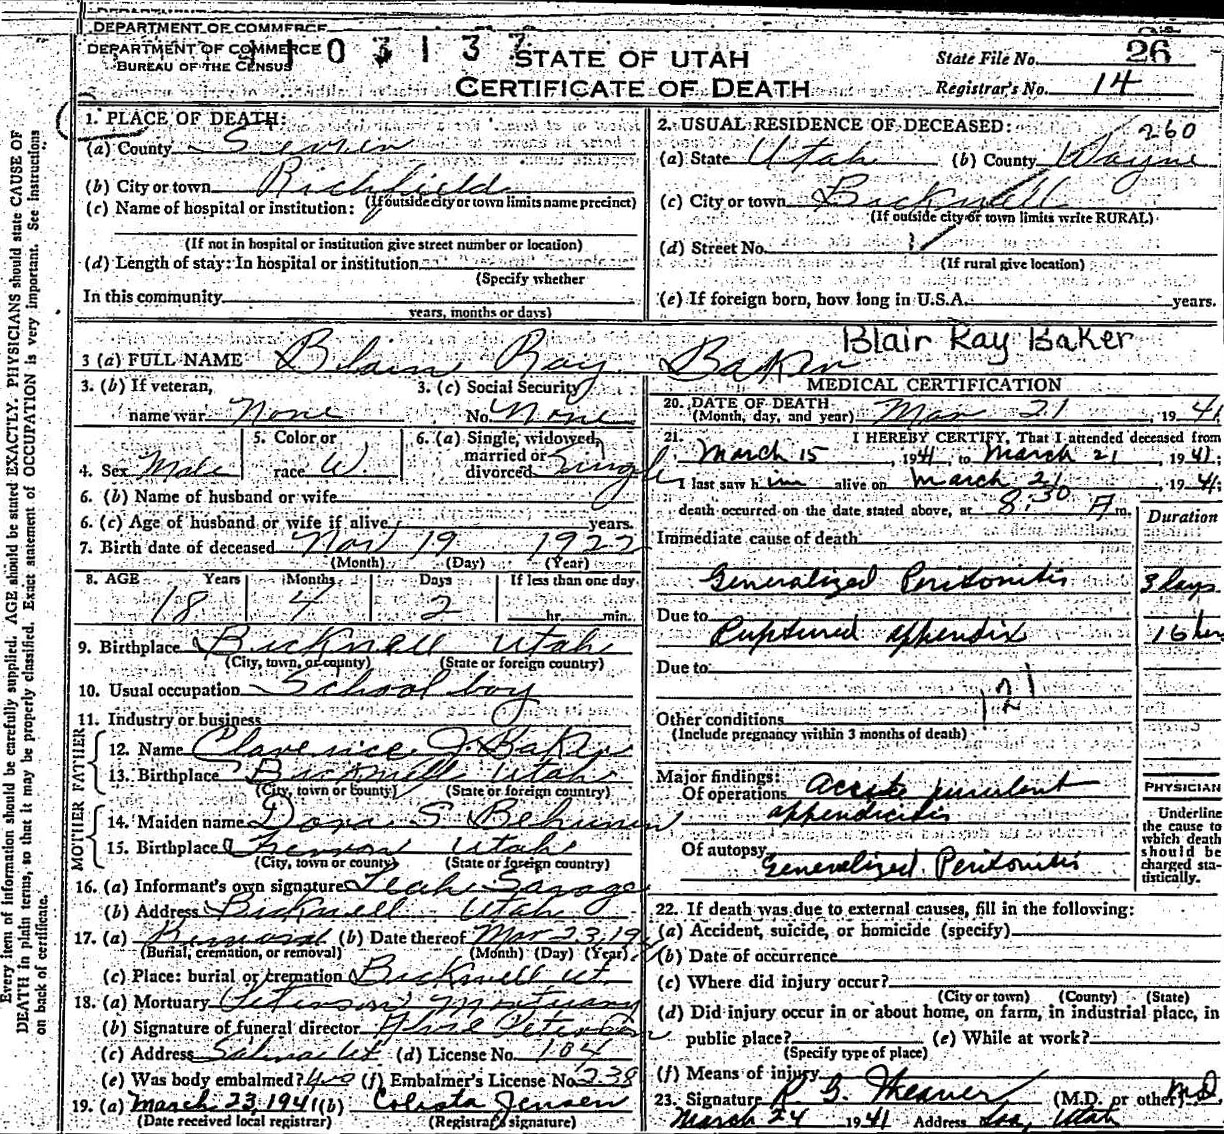 DEPARTMENT OF COMMERCE
DEPARTMENT OF COMMERCE
BUREAU OF THE CENSUS
STATE OF UTAH
CERTIFICATE OF DEATH
State File No. 26
Registrar's No. 14
1. PLACE OF DEATH:
(a) County Sevier
(b) City or town Richfield
(If outside city or town limits name precinct)
(c) Name of hospital or institution:
(If not in hospital or institution give street number or location)
(d) Length of stay: In hospital or institution
(Specify whether
In this community
years, months or days)
2. USUAL RESIDENCE OF DECEASED: 260
(a) State Utah (b) County Wayne
(c) City or town Bicknell
(If outside city or town limits write RURAL)
(d) Street No.
(If rural give location)
(e) If foreign born, how long in U.S.A. years.
Blair Ray Baker
3 (a) FULL NAME Blair Ray Baker
3. (b) If veteran,
name war None
3. (c) Social Security
No. None
4. Sex Male
5. Color or
race W.
6. (a) Single, widowed,
married or
divorced Single
6. (b) Name of husband or wife
6. (c) Age of husband or wife if alive years.
7. Birth date of deceased Nov 19 1922
(Month) (Day) (Year)
8. AGE Years Months Days If less than one day
18 4 2 hr. min.
9. Birthplace Bicknell Utah
(City, town, or county) (State or foreign country)
10. Usual occupation School boy
11. Industry or business
FATHER
12. Name Clarence J. Baker
13. Birthplace Bicknell Utah
(City, town or county) (State or foreign country)
MOTHER
14. Maiden name Dora S Behunin
15. Birthplace Utah
(City, town or county) (State or foreign country)
16. (a) Informant's own signature Leah Savage
(b) Address Bicknell Utah
17. (a) (b) Date thereof Mar 23, 19
(Burial, cremation, or removal) (Month) (Day) (Year)
(c) Place: burial or cremation Bicknell Ut.
18. (a) Mortuary Peterson Mortuary
(b) Signature of funeral director
(c) Address Salina Ut (d) License No. 104
(e) Was body embalmed? yes (f) Embalmer's License No. 238
19. (a) March 23, 1941 (b) Colista Jensen
(Date received local registrar) (Registrar's signature)
MEDICAL CERTIFICATION
20. DATE OF DEATH
(Month, day, and year) Mar 21, 1941
21. I HEREBY CERTIFY, That I attended deceased from
March 15, 1941, to March 21, 1941;
I last saw him alive on March 21, 1941;
death occurred on the date stated above, at 8:30 A m.
Duration
Immediate cause of death
Generalized Peritonitis 3 days
Due to
Ruptured appendix 16 hrs
Due to
121
Other conditions
(Include pregnancy within 3 months of death)
Major findings:
Of operations Accute purulent
appendicitis
Of autopsy
Generalized Peritonitis
PHYSICIAN
Underline
the cause to
which death
should be
charged sta-
tistically.
22. If death was due to external causes, fill in the following:
(a) Accident, suicide, or homicide (specify)
(b) Date of occurrence
(c) Where did injury occur?
(City or town) (County) (State)
(d) Did injury occur in or about home, on farm, in industrial place, in
public place? (e) While at work?
(Specify type of place)
(f) Means of injury
23. Signature (M.D. or other) M.D.
March 24 1941 Address Loa, Utah
Every item of information should be carefully supplied. AGE should be stated EXACTLY. PHYSICIANS should state CAUSE OF
DEATH in plain terms, so that it may be properly classified. Exact statement of OCCUPATION is very important. See instructions
on back of certificate.